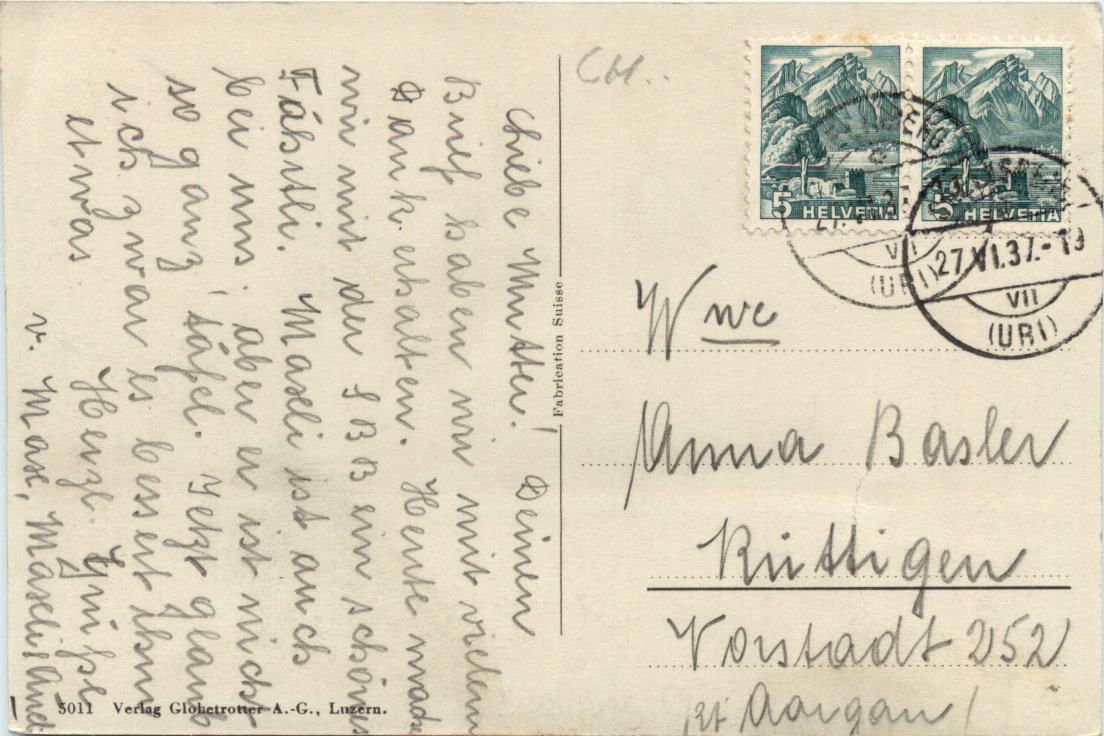 Liebe Mutter! Deinen
Brief haben wir mit vielem
Dank erhalten. Heute machen
wir mit der SBB ein schönes
Fährtli. Maseli ist auch
bei uns, aber er ist nicht
so ganz täfel. Jetzt glaub
ich zwar es bessert ihm
etwas Herzl. Grüsse
v. Mase, Maseli
CH..
5 HELVETIA
5 HELVETIA
VII
(URI)
27.VI.37.-19
VII
(URI)
Wwe
Anna Basler
Küttigen
Vorstadt 252
Kt Aargau
Fabrication Suisse
5011 Verlag Globetrotter A.-G., Luzern.